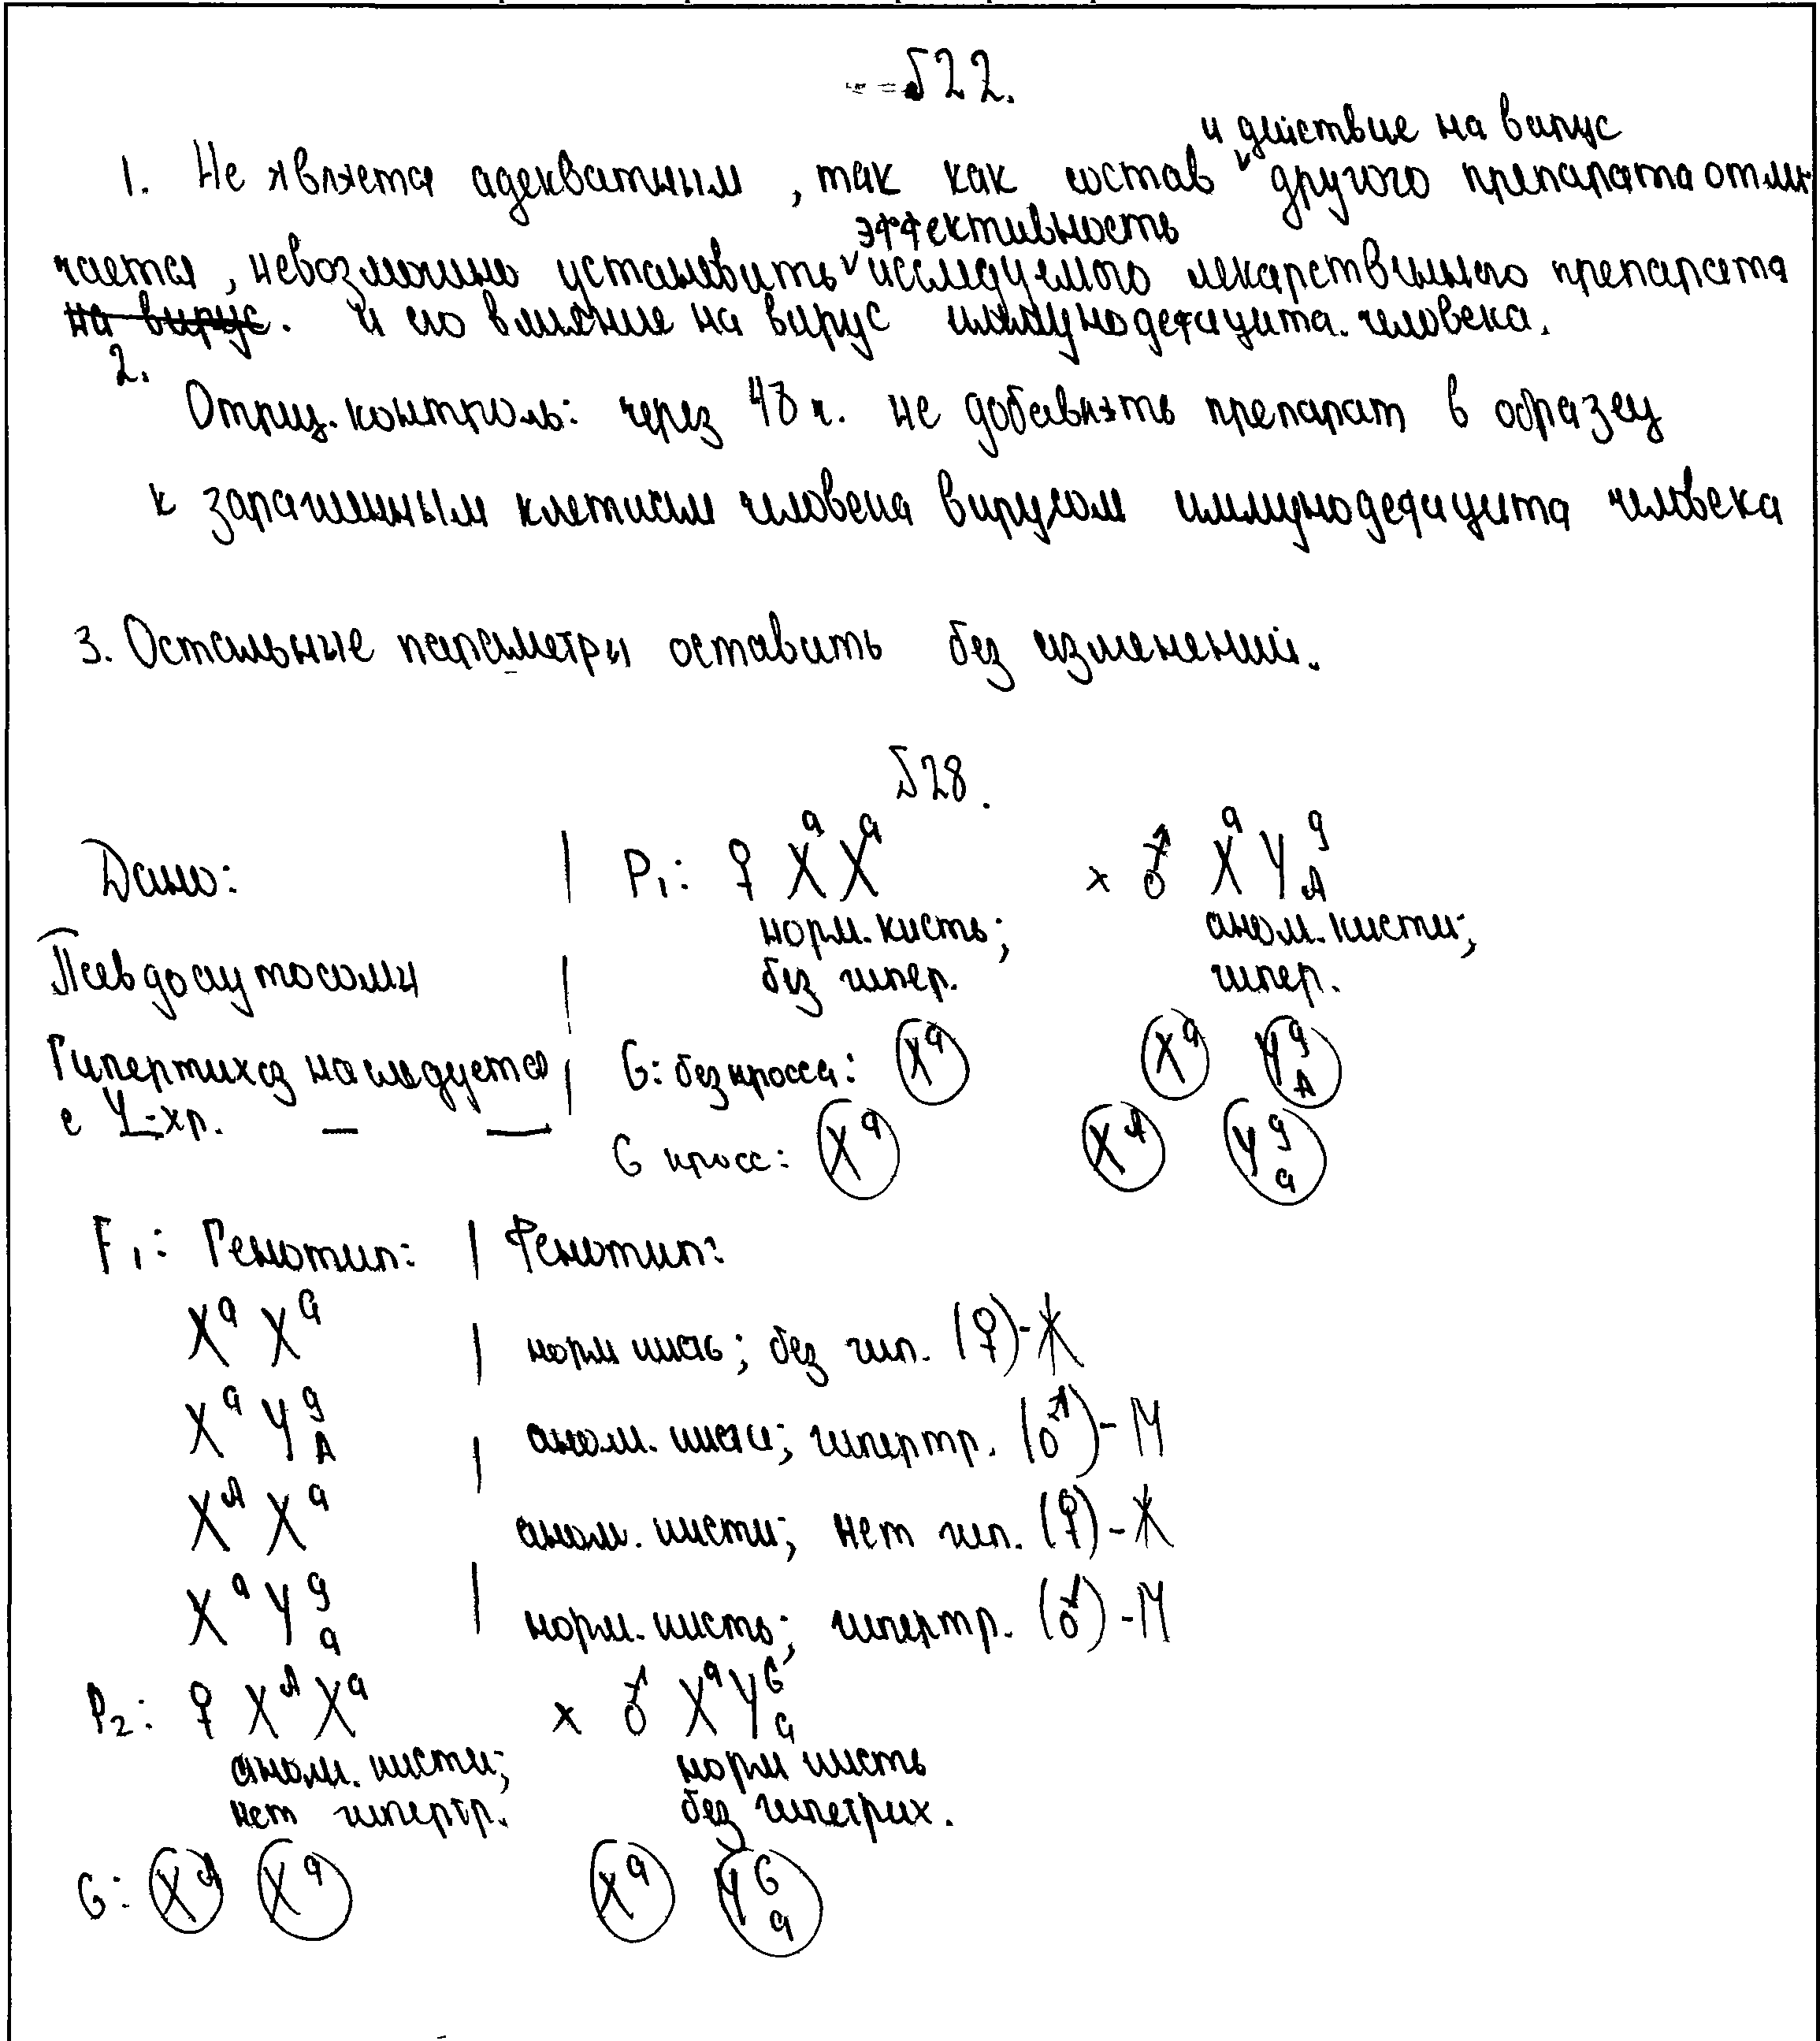 №22.
1. Не является адекватным, так как состав и действие на вирус другого препарата отли-
чается, невозможно установить эффективность исследуемого лекарственного препарата
~~на вирус~~. и его влияние на вирус иммунодефицита человека.
2.
Отриц. контроль: через 48 ч. не добавлять препарат в образец
к зараженным клеткам человека вирусом иммунодефицита человека
3. Остальные параметры оставить без изменений.
№28.
Дано: | P₁: ♀ XᵃXᵃ x ♂ XᵃY^g_A
норм. кисть; аном. кисти;
Псевдоаутосомы | без гипер. гипер.
Гипертихоз наследуется | G: без кросса: Xᵃ Xᵃ Y^g_A
с Y-хр.
G кросс: Xᵃ Xᴬ Y^g_a
F₁: Генотип: | Фенотип:
XᵃXᵃ | норм кисть; без гип. (♀)-Ж
XᵃY^g_A | аном. кисти; гипертр. (♂)-М
XᴬXᵃ аном. кисти; нет гип. (♀)-Ж
XᵃY^g_a | норм. кисть; гипертр. (♂)-М
P₂: ♀ XᴬXᵃ x ♂ XᵃY^G_a
аном. кисти; норм кисть
нет гипертр. без гипетрих.
G: Xᴬ Xᵃ Xᵃ Y^G_a